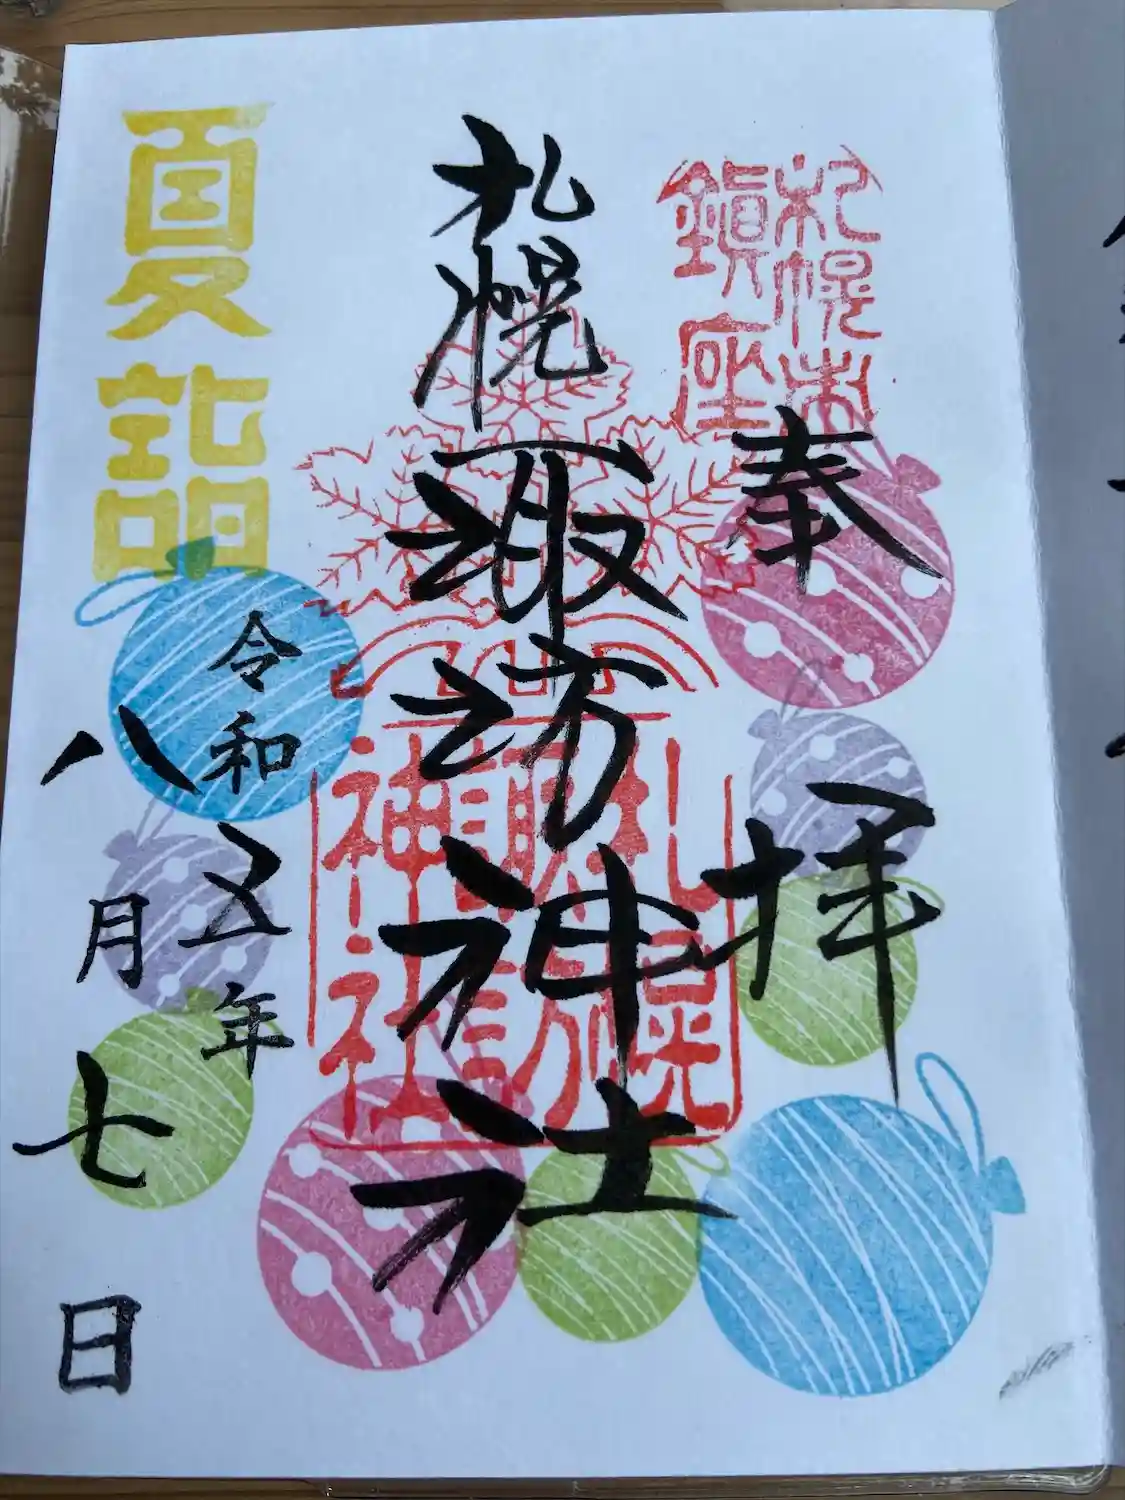 札幌市
鎮座
奉拝
札幌諏訪神社
札幌
諏訪
神社
夏詣
令和五年
八月七日